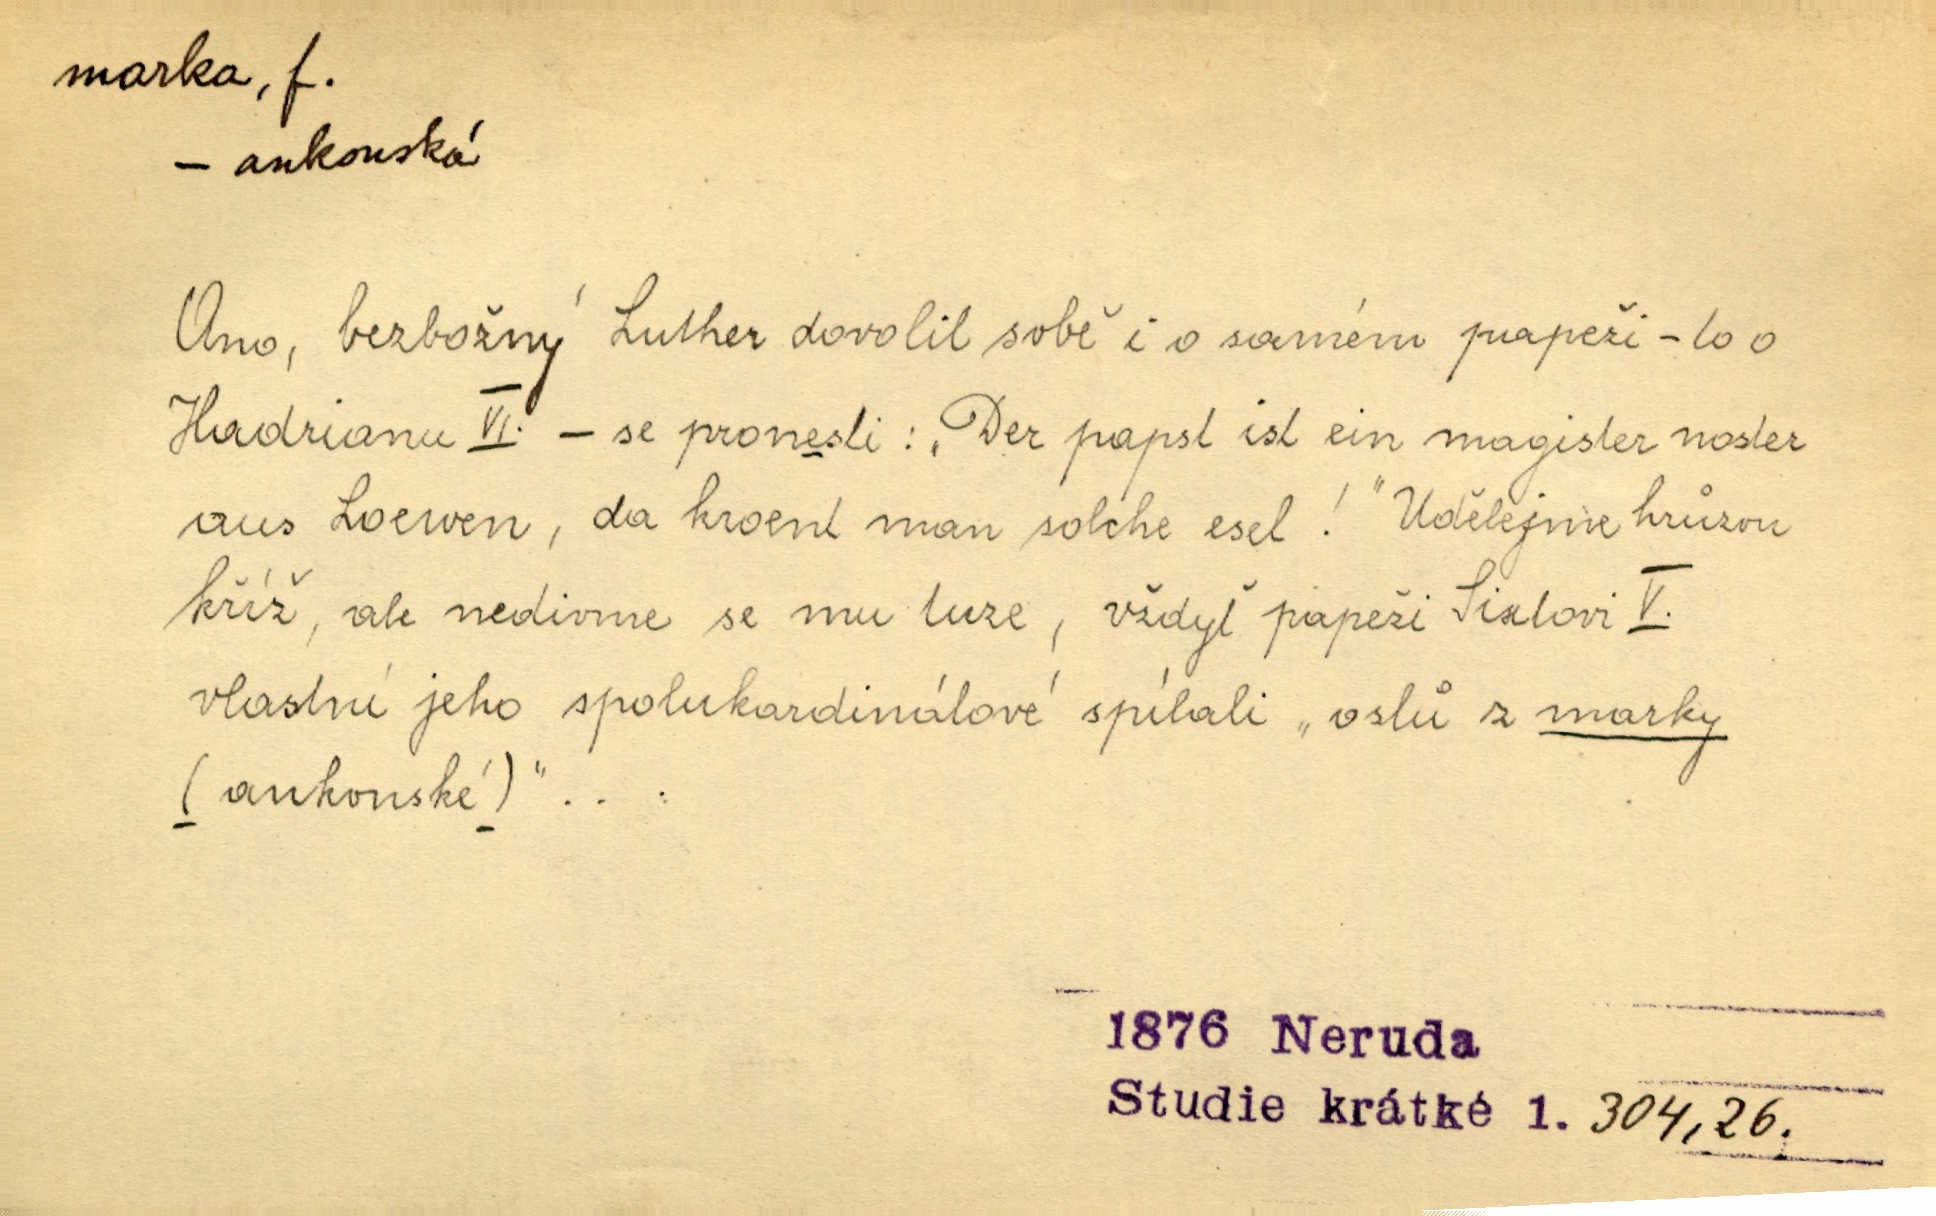 marka, f.
– ankonská
Ano, bezbožný Luther dovolil sobě i o samém papeži – to o
Hadrianu VI. – se pronesti: „Der papst ist ein magister noster
aus Loewen, da kroent man solche esel!" Udělejme hrůzou
kříž, ale nedivme se mu tuze, vždyť papeži Sixtovi V.
vlastní jeho spolukardinálové spílali „oslů z marky
(ankonské)" . . .
1876 Neruda
Studie krátké 1. 304,26.